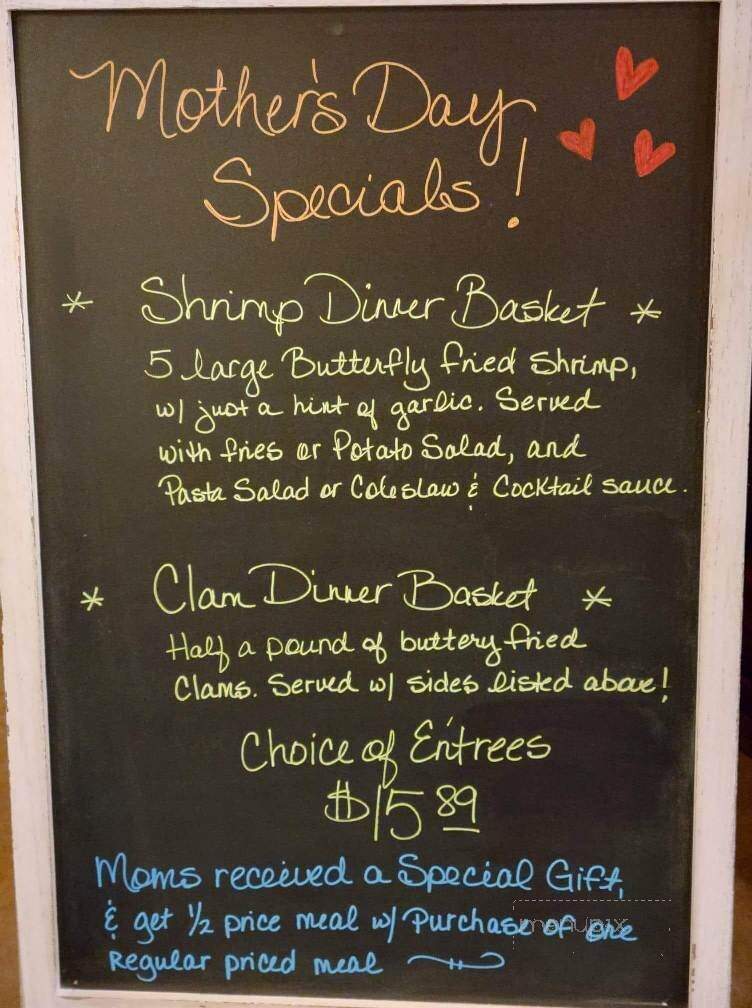 Mother's Day
Specials!
* Shrimp Dinner Basket *
5 large Butterfly fried Shrimp,
w/ just a hint of garlic. Served
with fries or Potato Salad, and
Pasta Salad or Coleslaw & Cocktail sauce.
* Clam Dinner Basket *
Half a pound of buttery fried
Clams. Served w/ sides listed above!
Choice of Entrees
$15 89
Moms received a Special Gift,
& get 1/2 price meal w/ Purchase of one
menupix
Regular priced meal